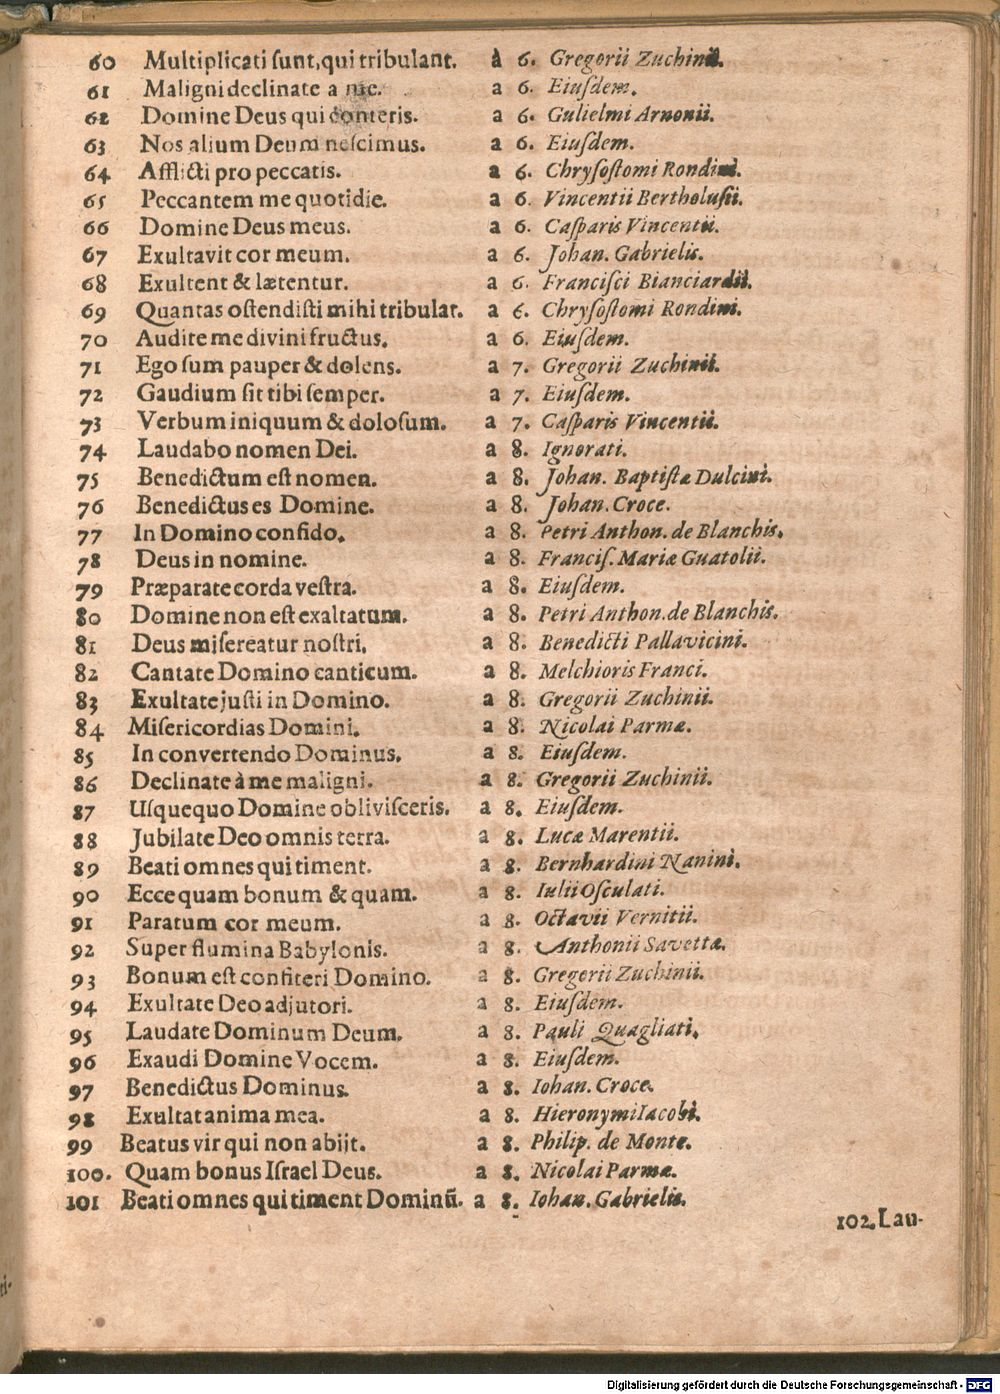 60 Multiplicati ſunt, qui tribulant. à 6. Gregorii Zuchinii.
61 Maligni declinate a me. a 6. Eiuſdem.
62 Domine Deus qui conteris. a 6. Gulielmi Arnonii.
63 Nos alium Deum neſcimus. a 6. Eiuſdem.
64 Afflicti pro peccatis. a 6. Chryſoſtomi Rondini.
65 Peccantem me quotidie. a 6. Vincentii Bertholuſii.
66 Domine Deus meus. a 6. Caſparis Vincentii.
67 Exultavit cor meum. a 6. Johan. Gabrielis.
68 Exultent & lætentur. a 6. Franciſci Bianciardii.
69 Quantas oſtendiſti mihi tribulat. a 6. Chryſoſtomi Rondini.
70 Audite me divini fructus. a 6. Eiuſdem.
71 Ego ſum pauper & dolens. a 7. Gregorii Zuchinii.
72 Gaudium ſit tibi ſemper. a 7. Eiuſdem.
73 Verbum iniquum & doloſum. a 7. Caſparis Vincentii.
74 Laudabo nomen Dei. a 8. Ignorati.
75 Benedictum eſt nomen. a 8. Johan. Baptiſtæ Dulcini.
76 Benedictus es Domine. a 8. Johan. Croce.
77 In Domino confido. a 8. Petri Anthon. de Blanchis.
78 Deus in nomine. a 8. Franciſ. Mariæ Guatolii.
79 Præparate corda veſtra. a 8. Eiuſdem.
80 Domine non eſt exaltatum. a 8. Petri Anthon. de Blanchis.
81 Deus miſereatur noſtri. a 8. Benedicti Pallavicini.
82 Cantate Domino canticum. a 8. Melchioris Franci.
83 Exultate juſti in Domino. a 8. Gregorii Zuchinii.
84 Miſericordias Domini. a 8. Nicolai Parmæ.
85 In convertendo Dominus. a 8. Eiuſdem.
86 Declinate à me maligni. a 8. Gregorii Zuchinii.
87 Uſquequo Domine obliviſceris. a 8. Eiuſdem.
88 Jubilate Deo omnis terra. a 8. Lucæ Marentii.
89 Beati omnes qui timent. a 8. Bernhardini Nanini.
90 Ecce quam bonum & quam. a 8. Iulii Oſculati.
91 Paratum cor meum. a 8. Octavii Vernitii.
92 Super flumina Babylonis. a 8. Anthonii Savettæ.
93 Bonum eſt confiteri Domino. a 8. Gregorii Zuchinii.
94 Exultate Deo adjutori. a 8. Eiuſdem.
95 Laudate Dominum Deum. a 8. Pauli Quagliati.
96 Exaudi Domine Vocem. a 8. Eiuſdem.
97 Benedictus Dominus. a 8. Iohan. Croce.
98 Exultat anima mea. a 8. Hieronymi Iacobi.
99 Beatus vir qui non abijt. a 8. Philip. de Monte.
100. Quam bonus Iſrael Deus. a 8. Nicolai Parmæ.
101 Beati omnes qui timent Dominū. a 8. Iohan. Gabrielis.
102. Lau-
Digitalisierung gefördert durch die Deutsche Forschungsgemeinschaft - DFG